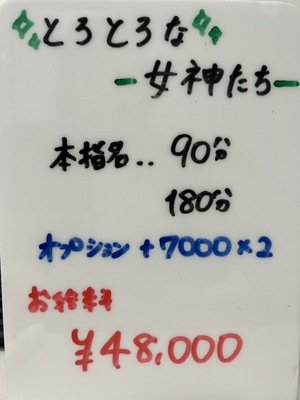 とろとろな
ー女神たちー
本指名.. 90分
180分
オプション +7000×2
お給料
¥48,000